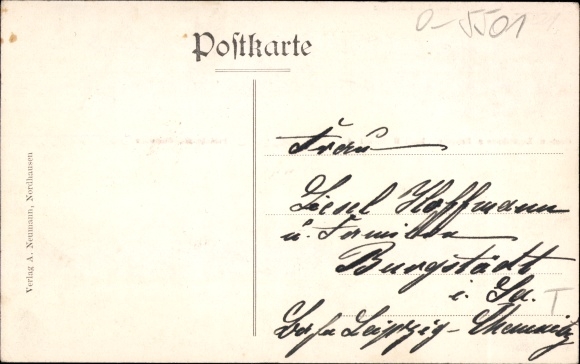 0-5501
Postkarte
Frau
Liesel Hoffmann
u. Familie
Burgstädt
i. Sa.
T
Leipzig-Chemnitz
Verlag A. Neumann, Nordhausen